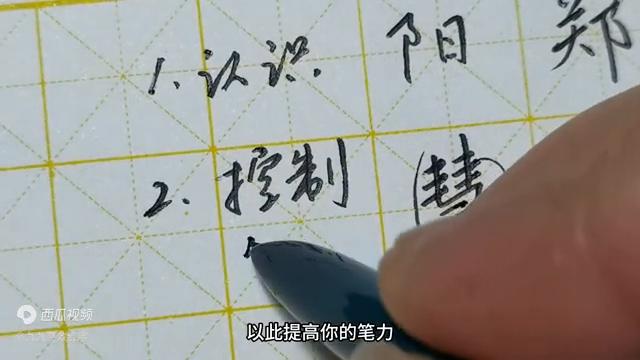 1.认识 阳 郑
2.控制
西瓜视频
以此提高你的笔力